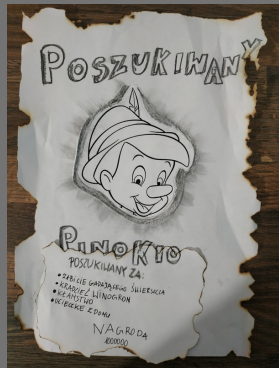 POSZUKIWANY
PINOKIO
POSZUKIWANY ZA:
• ZABICIE GADAJĄCEGO ŚWIERSZCZA
• KRADZIEŻ WINOGRON
• KŁAMSTWO
• UCIECZKĘ Z DOMU
NAGRODA